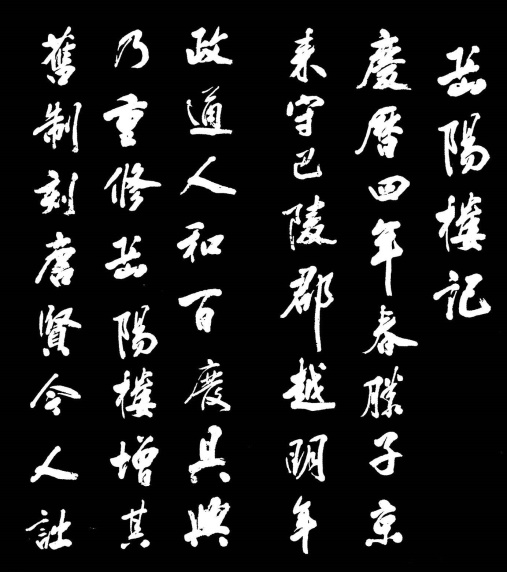 岳陽樓記
慶曆四年春滕子京
来守巴陵郡越明年
政通人和百廢具興
乃重修岳陽樓增其
舊制刻唐賢今人詩